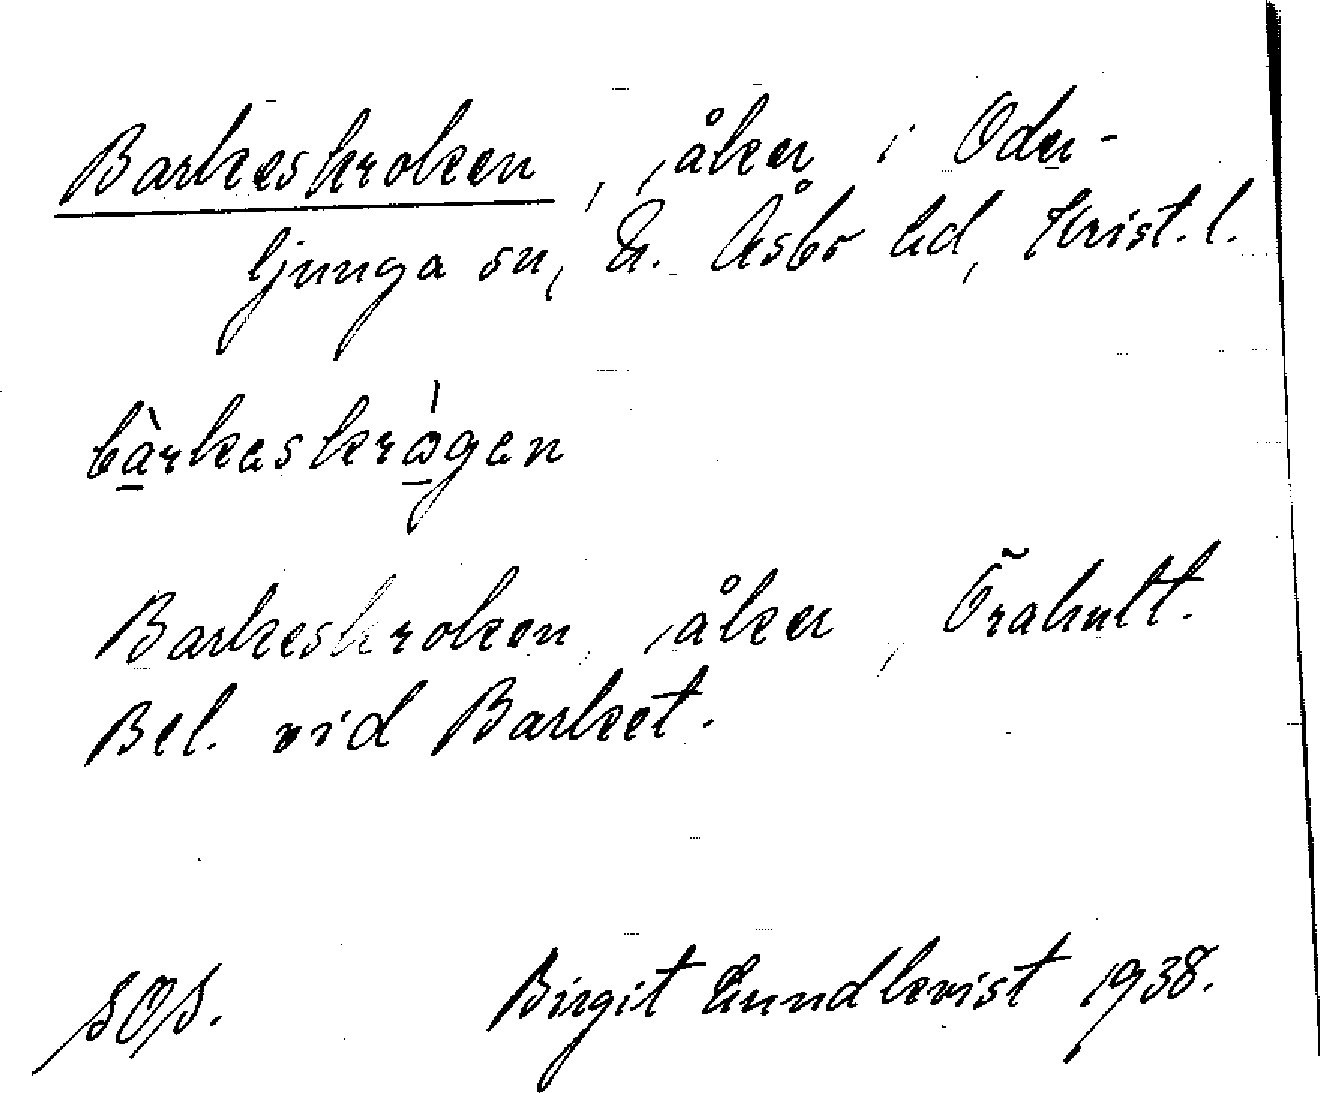 Barkeskroken, åker i Oder-
ljunga sn, N. Åsbo hd, Krist. l.
bàrkeskrògen
Barkeskroken, åker, Örahult.
Bel. vid Barket.
SOS. Birgit Lundkvist 1938.